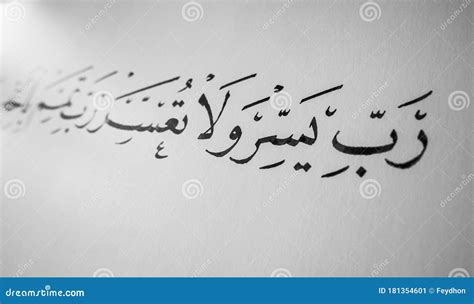 رَبِّ يَسِّرْ وَلَا تُعَسِّرْ رَبِّ تَمِّمْ
dreamstime
dreamstime.com
ID 181354601 © Feydhon